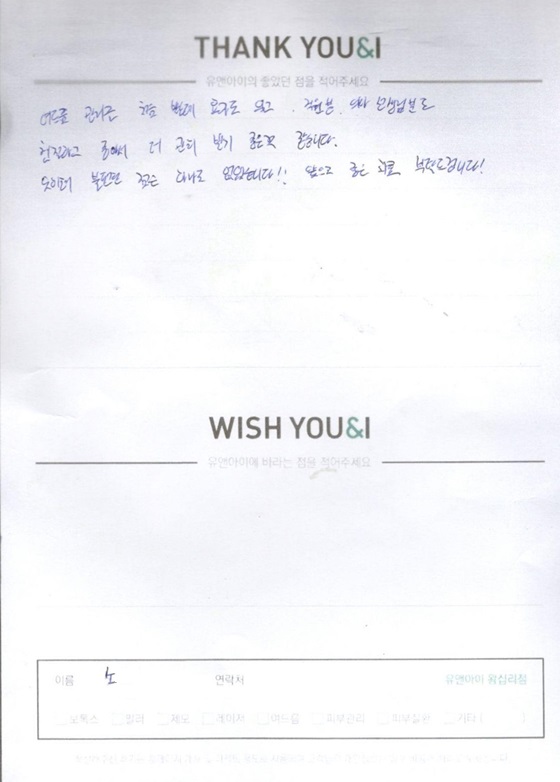 THANK YOU&I
유앤아이의 좋았던 점을 적어주세요
여드름 관리는 처음 받는데 효과도 있고, 직원분, 의사 선생님분도
친절하고 좋아서 더 관리 받기 좋은것 같습니다.
불편한 점은 하나도 없었습니다!! 앞으로 좋은 치료 부탁드립니다!
WISH YOU&I
유앤아이에 바라는 점을 적어주세요
이름 노 연락처 유앤아이 왕십리점
보톡스 필러 제모 레이저 여드름 피부관리 피부질환 기타 ( )